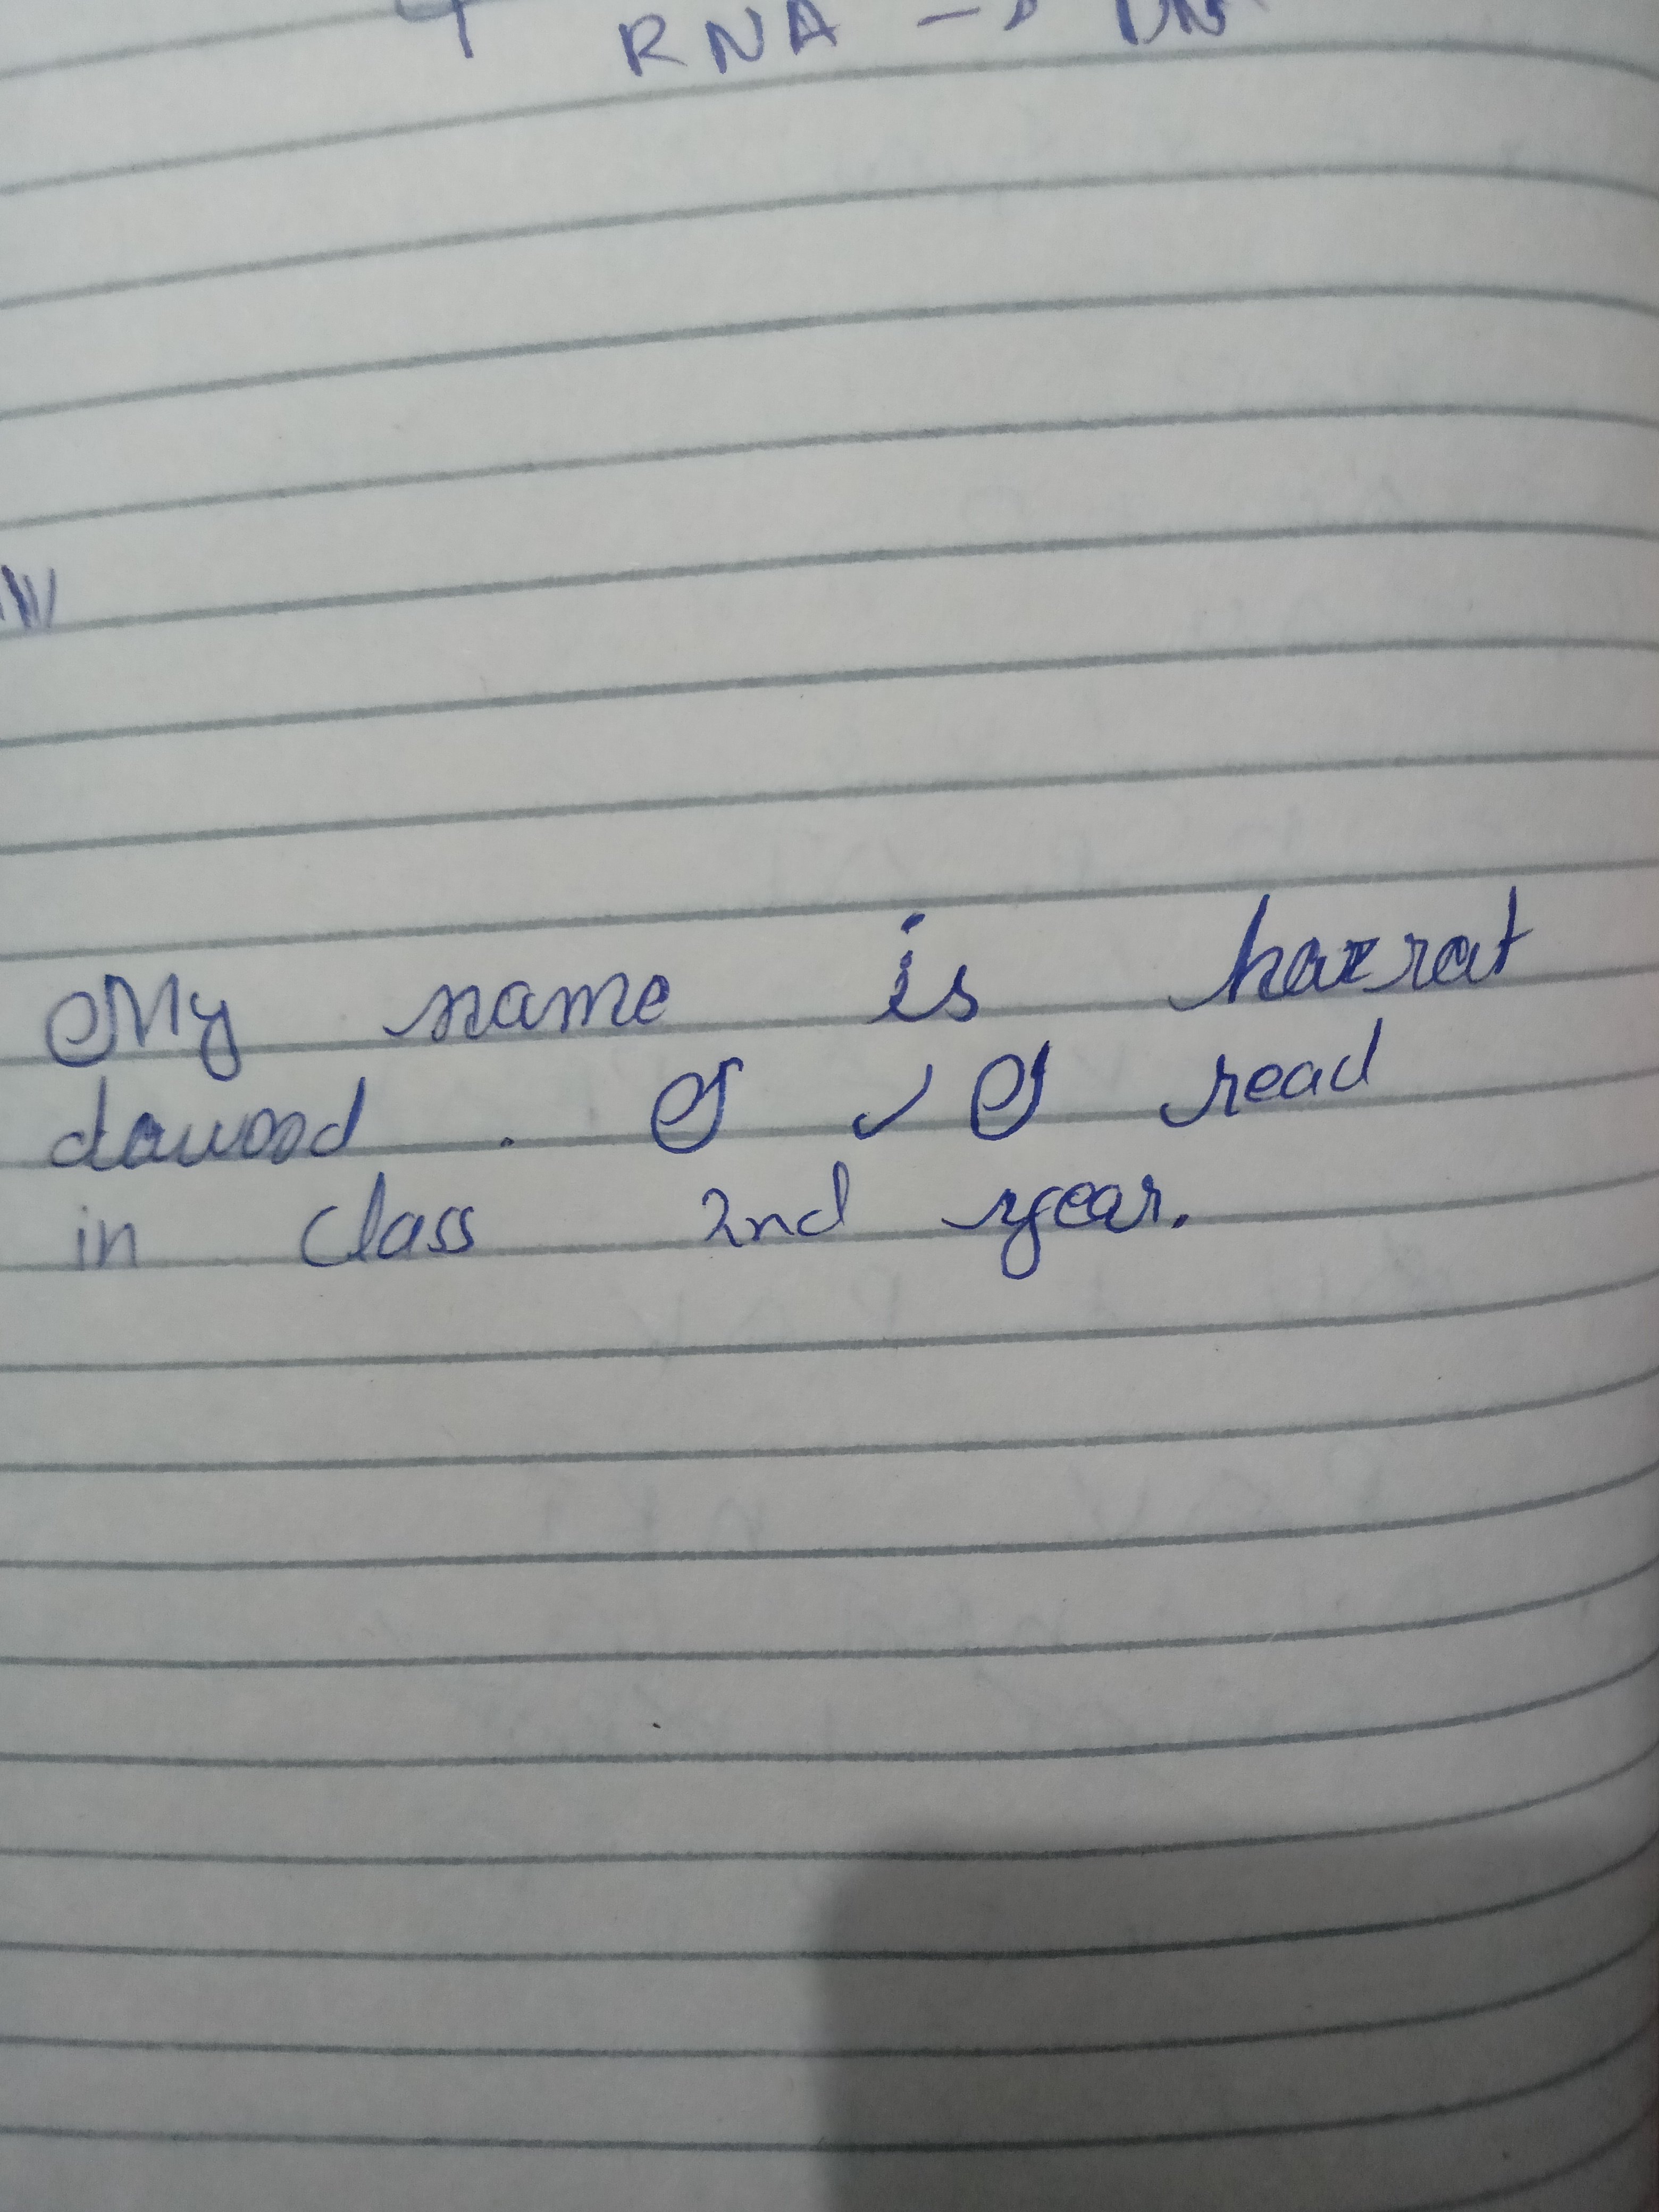 RNA →
My name is hazrat
dawood . I ✓ I read
in class 2nd year.